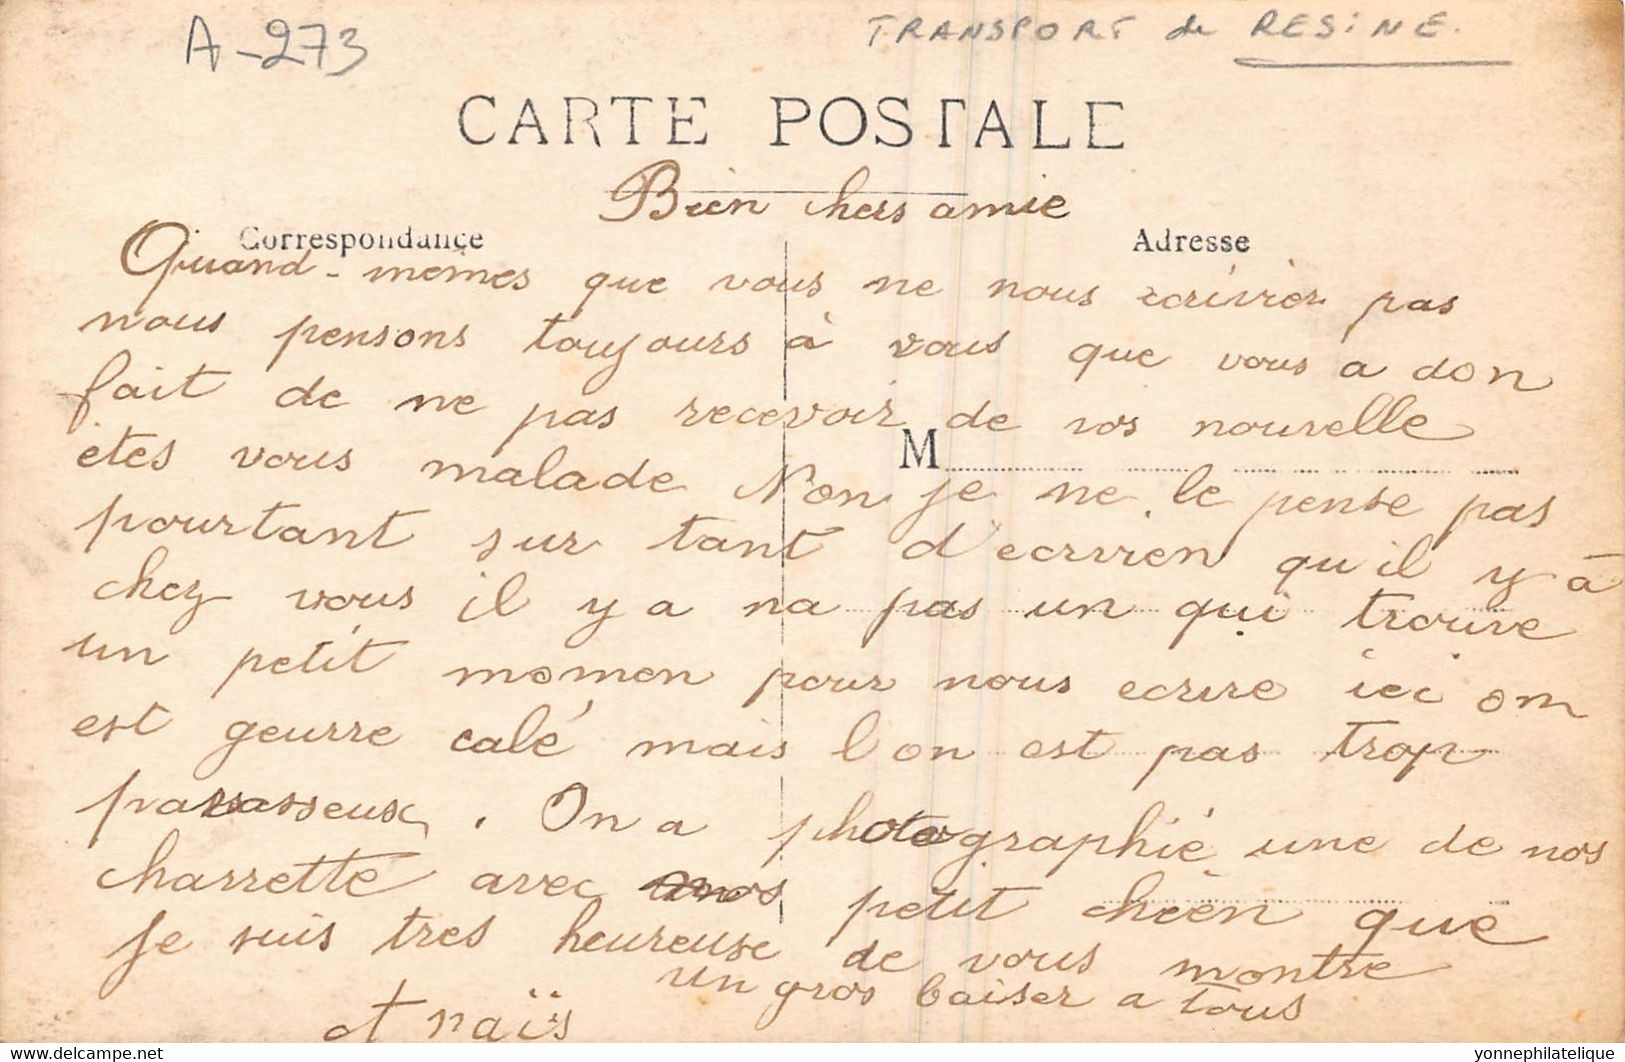 A-273
TRANSPORT de RESINE.
CARTE POSTALE
Bien chers amie
Correspondance
Adresse
Quand-mêmes que vous ne nous écrivier pas
nous pensons toujours à vous que vous a don
fait de ne pas recevoir de vos nouvelle
M
êtes vous malade Non je ne le pense pas
pourtant sur tant d'ecrivien qu'il y à
chez vous il y a na pas un qui trouve
un petit momen pour nous ecrire ici om
est geurre calé mais l'on est pas trop
parasseux. On a photographié une de nos
charrette avec petit chêen que
je suis tres heureuse de vous montre
un gros baiser a tous
yonnephilatelique
delcampe.net